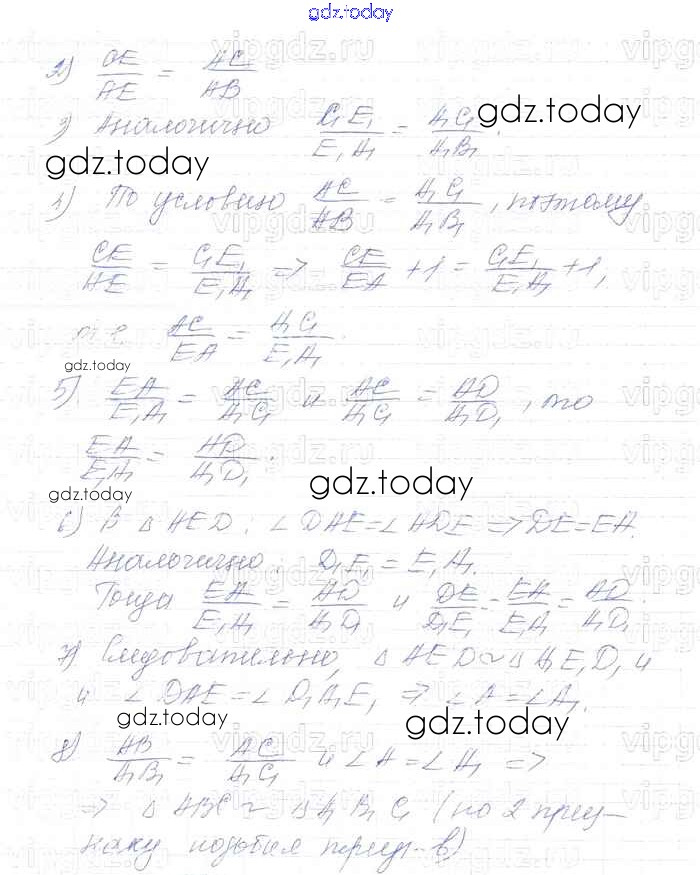 gdz.today
2) CE/AE = AC/AB
3) Аналогично C₁E₁/E₁A₁ = A₁C₁/A₁B₁.
gdz.today
gdz.today
4) По условию AC/AB = A₁C₁/A₁B₁, поэтому
CE/AE = C₁E₁/E₁A₁ => CE/EA + 1 = C₁E₁/E₁A₁ + 1,
AC/EA = A₁C₁/E₁A₁.
gdz.today
5) EA/E₁A₁ = AC/A₁C₁ и AC/A₁C₁ = AD/A₁D₁, то
EA/E₁A₁ = AD/A₁D₁.
gdz.today
gdz.today
6) В △ AED: ∠DAE = ∠ADE => DE = EA.
Аналогично: D₁E₁ = E₁A₁.
Тогда EA/E₁A₁ = AD/A₁D₁ и DE/D₁E₁ = EA/E₁A₁ = AD/A₁D₁.
7) Следовательно, △ AED ~ △ A₁E₁D₁ и
и ∠ DAE = ∠ D₁A₁E₁ => ∠A = ∠A₁.
gdz.today
gdz.today
8) AB/A₁B₁ = AC/A₁C₁ и ∠A = ∠A₁ =>
=> △ ABC ~ △ A₁B₁C₁ (по 2 приз-
наку подобия треуг-в)